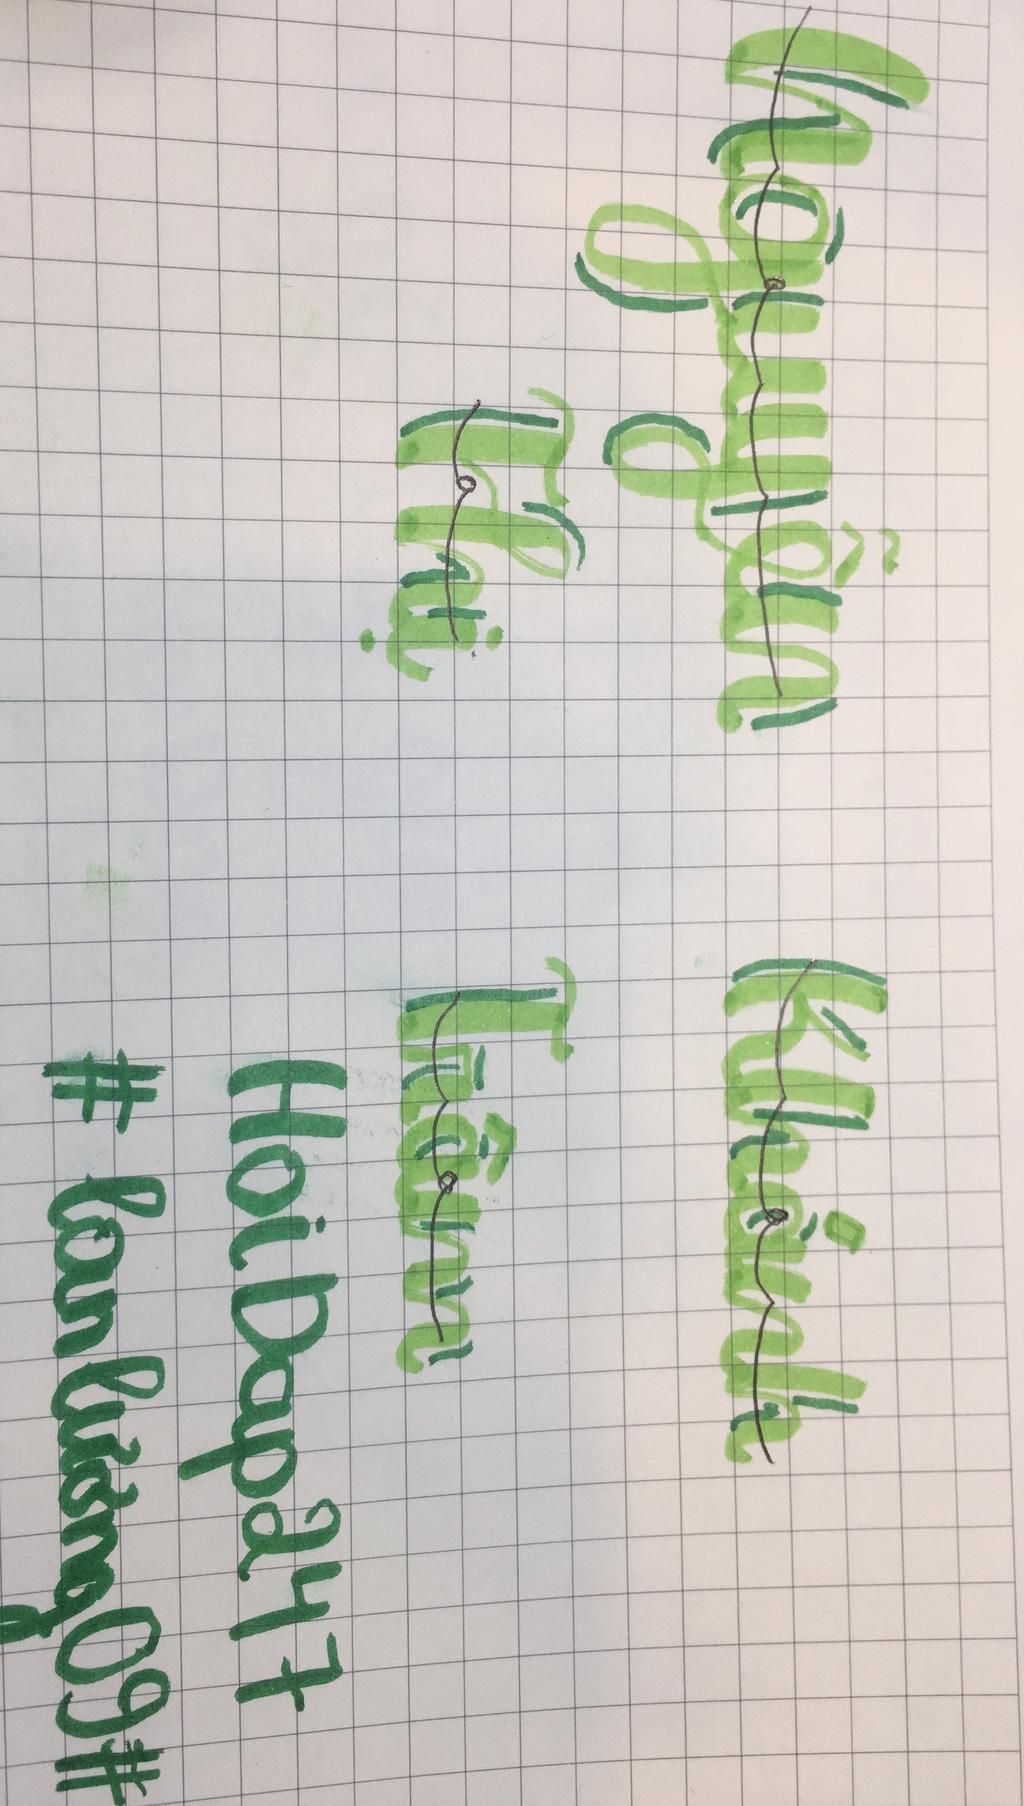 Nguyễn Khánh
Thị Trân
HoiDap247
# lanhương09#